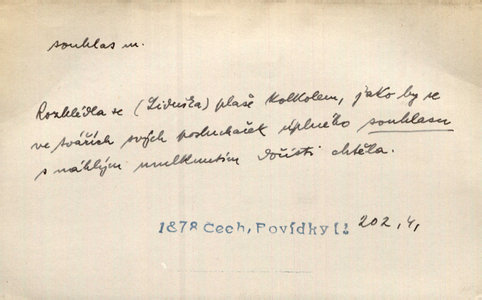 souhlas m.
Rozhlédla se (Liduška) plaše kolkolem, jako by se
ve tvářích svých posluchaček úplného souhlasu
s náhlým umlknutím dočísti chtěla.
1878 Čech, Povídky I: 202,4,